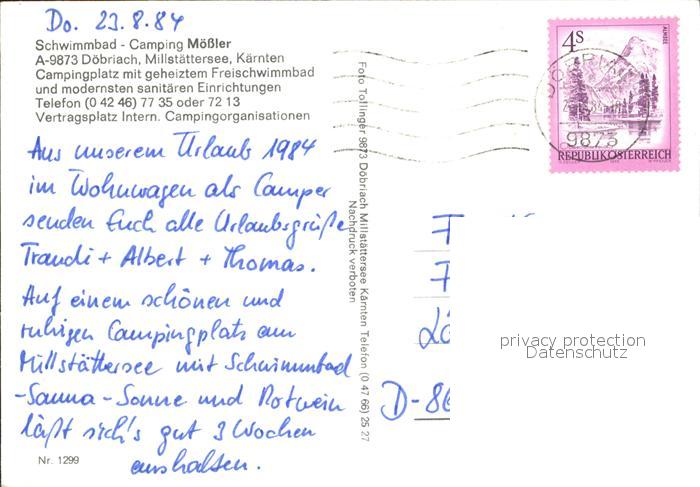 Do. 23.8.84
Schwimmbad - Camping Mößler
A-9873 Döbriach, Millstättersee, Kärnten
Campingplatz mit geheiztem Freischwimmbad
und modernsten sanitären Einrichtungen
Telefon (0 42 46) 77 35 oder 72 13
Vertragsplatz Intern. Campingorganisationen
Aus unserem Urlaub 1984
im Wohnwagen als Camper
senden Euch alle Urlaubsgrüße
Traudi + Albert + Thomas.
Auf einem schönen und
ruhigen Campingplatz am
Millstättersee mit Schwimmbad
-Sauna-Sonne und Rotwein
läßt sich's gut 3 Wochen
aushalten.
Nr. 1299
Foto Tollinger 9873 Döbriach Millstättersee Kärnten Telefon (0 47 66) 25 27
Nachdruck verboten
4S
ALMSEE
9873
REPUBLIK ÖSTERREICH
D-86
privacy protection
Datenschutz